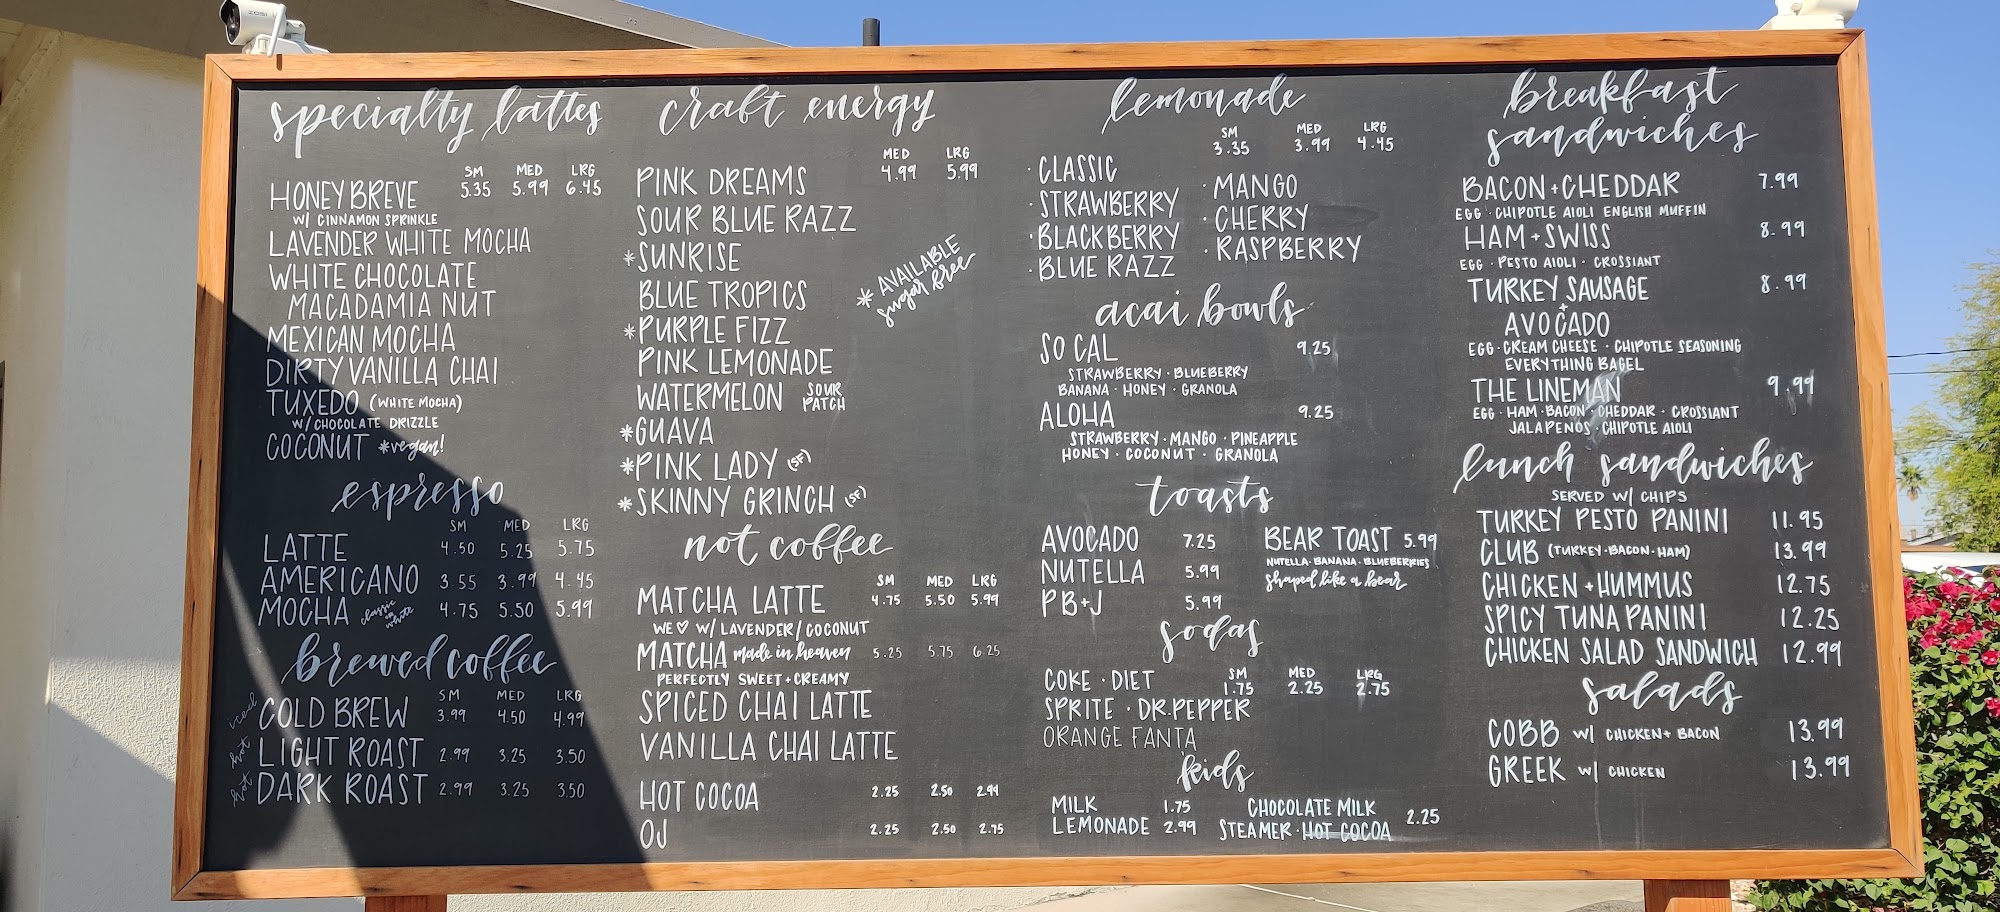 ZOSI
specialty lattes
SM MED LRG
HONEY BREVE 5.35 5.99 6.45
W/ CINNAMON SPRINKLE
LAVENDER WHITE MOCHA
WHITE CHOCOLATE
MACADAMIA NUT
MEXICAN MOCHA
DIRTY VANILLA CHAI
TUXEDO (WHITE MOCHA)
W/ CHOCOLATE DRIZZLE
COCONUT *vegan!
espresso
SM MED LRG
LATTE 4.50 5.25 5.75
AMERICANO 3.55 3.99 4.45
MOCHA classic or white 4.75 5.50 5.99
brewed coffee
SM MED LRG
iced COLD BREW 3.99 4.50 4.99
hot LIGHT ROAST 2.99 3.25 3.50
hot DARK ROAST 2.99 3.25 3.50
craft energy
MED LRG
PINK DREAMS 4.99 5.99
SOUR BLUE RAZZ
*SUNRISE
BLUE TROPICS
*PURPLE FIZZ
PINK LEMONADE
WATERMELON SOUR PATCH
*GUAVA
*PINK LADY (SF)
*SKINNY GRINCH (SF)
* AVAILABLE
sugar free
not coffee
SM MED LRG
MATCHA LATTE 4.75 5.50 5.99
WE ♡ W/ LAVENDER/COCONUT
MATCHA made in heaven 5.25 5.75 6.25
PERFECTLY SWEET + CREAMY
SPICED CHAI LATTE
VANILLA CHAI LATTE
HOT COCOA 2.25 2.50 2.99
OJ 2.25 2.50 2.75
lemonade
SM MED LRG
3.35 3.99 4.45
· CLASSIC
· STRAWBERRY
· BLACKBERRY
· BLUE RAZZ
· MANGO
· CHERRY
· RASPBERRY
acai bowls
SO CAL 9.25
STRAWBERRY · BLUEBERRY
BANANA · HONEY · GRANOLA
ALOHA 9.25
STRAWBERRY · MANGO · PINEAPPLE
HONEY · COCONUT · GRANOLA
toasts
AVOCADO 7.25
NUTELLA 5.99
PB+J 5.99
BEAR TOAST 5.99
NUTELLA · BANANA · BLUEBERRIES
shaped like a bear
sodas
SM MED LRG
COKE · DIET 1.75 2.25 2.75
SPRITE · DR.PEPPER
ORANGE FANTA
kids
MILK 1.75
LEMONADE 2.99
CHOCOLATE MILK 2.25
STEAMER · HOT COCOA
breakfast
sandwiches
BACON + CHEDDAR 7.99
EGG · CHIPOTLE AIOLI ENGLISH MUFFIN
HAM + SWISS 8.99
EGG · PESTO AIOLI · CROSSIANT
TURKEY SAUSAGE 8.99
+
AVOCADO
EGG · CREAM CHEESE · CHIPOTLE SEASONING
EVERYTHING BAGEL
THE LINEMAN 9.99
EGG · HAM · BACON · CHEDDAR · CROSSIANT
JALAPENOS · CHIPOTLE AIOLI
lunch sandwiches
SERVED W/ CHIPS
TURKEY PESTO PANINI 11.95
CLUB (TURKEY · BACON · HAM) 13.99
CHICKEN + HUMMUS 12.75
SPICY TUNA PANINI 12.25
CHICKEN SALAD SANDWICH 12.99
salads
COBB W/ CHICKEN + BACON 13.99
GREEK W/ CHICKEN 13.99